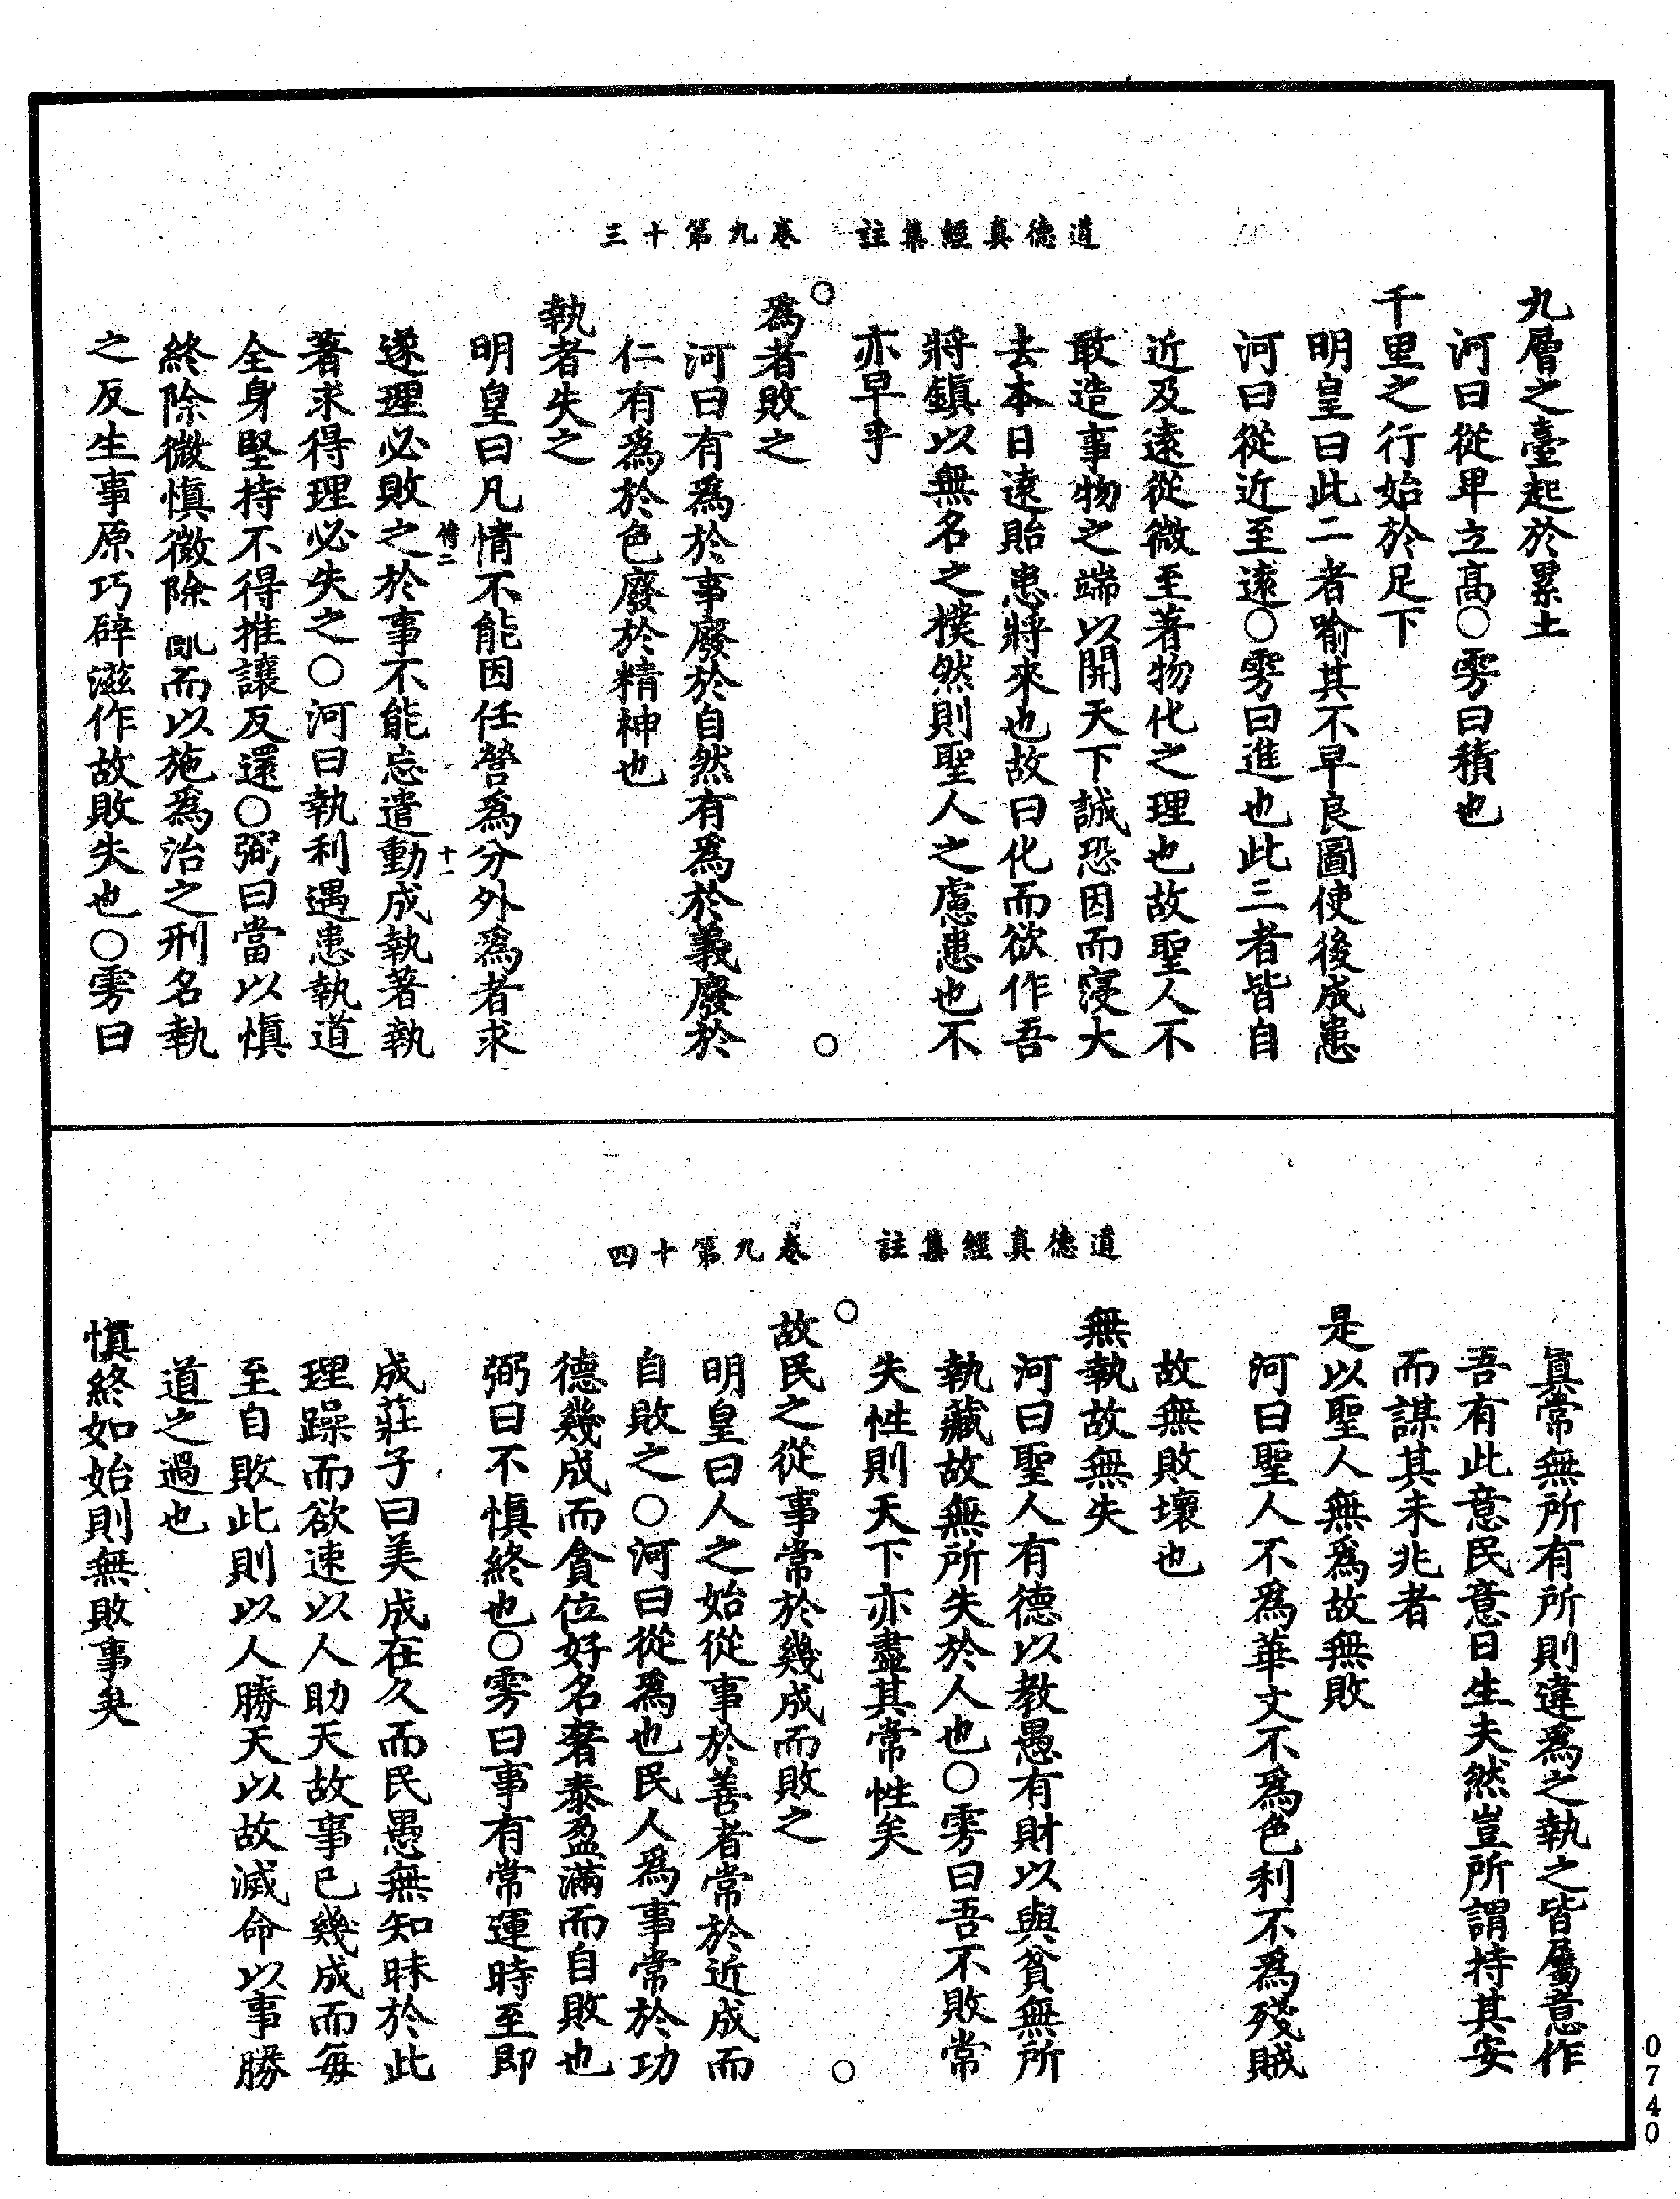 道德真經集註　卷九第十三
九層之臺起於累土
河曰從卑立高○雱曰積也
千里之行始於足下
明皇曰此二者喻其不早良圖使後成患
河曰從近至遠○雱曰進也此三者皆自
近及遠從微至著物化之理也故聖人不
敢造事物之端以開天下誠恐因而寖大
去本日遠貽患將來也故曰化而欲作吾
將鎮以無名之樸然則聖人之慮患也不
亦早乎
○
○
爲者敗之
河曰有爲於事廢於自然有爲於義廢於
仁有爲於色廢於精神也
執者失之
明皇曰凡情不能因任營爲分外爲者求
十一
遂理必敗之於事不能忘遣動成執著執
著求得理必失之○河曰執利遇患執道
全身堅持不得推讓反還○弼曰當以慎
終除微慎微除亂而以施爲治之刑名執
之反生事原巧碎滋作故敗失也○雱曰
道德真經集註　卷九第十四
眞常無所有所則違爲之執之皆屬意作
吾有此意民意日生夫然豈所謂持其安
而謀其未兆者
是以聖人無爲故無敗
河曰聖人不爲華文不爲色利不爲殘賊
故無敗壞也
無執故無失
河曰聖人有德以教愚有財以與貧無所
執藏故無所失於人也○雱曰吾不敗常
失性則天下亦盡其常性矣
○
○
故民之從事常於幾成而敗之
明皇曰人之始從事於善者常於近成而
自敗之○河曰從爲也民人爲事常於功
德幾成而貪位好名奢泰盈滿而自敗也
弼曰不慎終也○雱曰事有常運時至即
成莊子曰美成在久而民愚無知昧於此
理躁而欲速以人助天故事已幾成而每
至自敗此則以人勝天以故滅命以事勝
道之過也
慎終如始則無敗事矣
0740